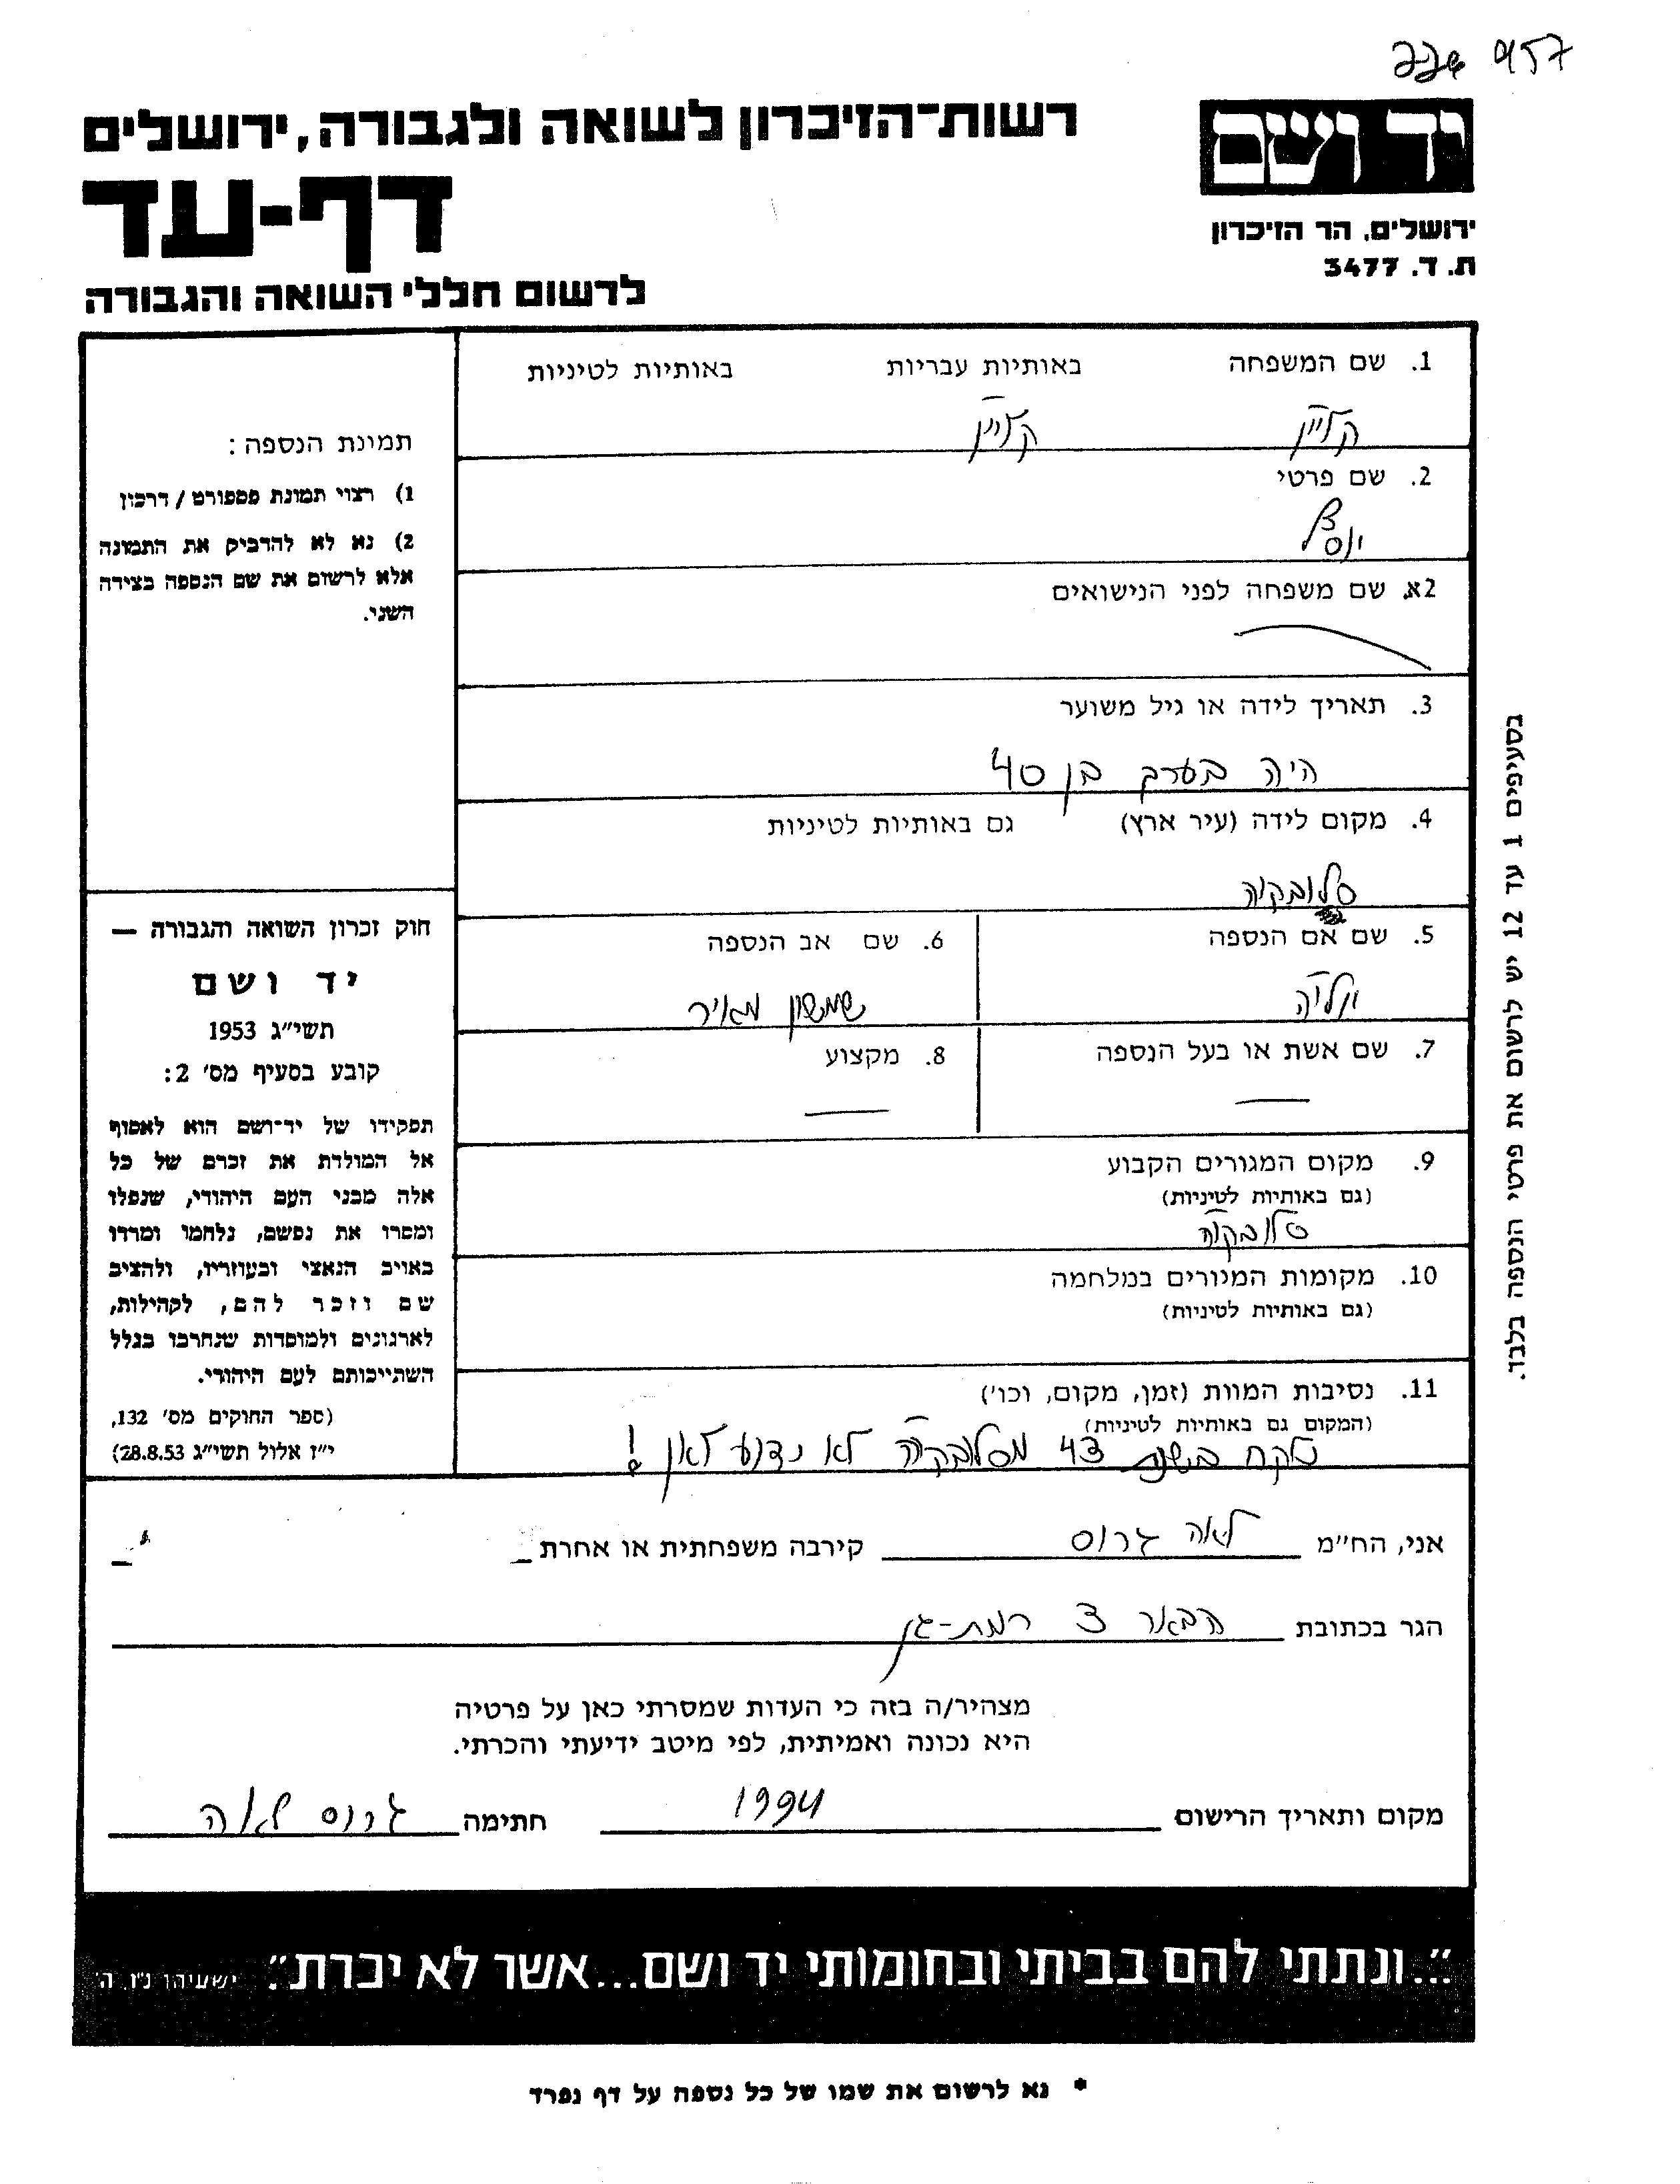 יד ושם
ירושלים, הר הזיכרון
ת. ד. 3477
רשות־הזיכרון לשואה ולגבורה, ירושלים
דף-עד
לרשום חללי השואה והגבורה
1. שם המשפחה באותיות עבריות באותיות לטיניות
קליין קליין
2. שם פרטי
2א. שם משפחה לפני הנישואים
3. תאריך לידה או גיל משוער
היה בערך בן 40
4. מקום לידה (עיר ארץ) גם באותיות לטיניות
סלובקיה
5. שם אם הנספה 6. שם אב הנספה
שמשון מאיר
7. שם אשת או בעל הנספה 8. מקצוע
— —
9. מקום המגורים הקבוע
(גם באותיות לטיניות)
סלובקיה
10. מקומות המגורים במלחמה
(גם באותיות לטיניות)
11. נסיבות המוות (זמן, מקום, וכו')
(המקום גם באותיות לטיניות)
נלקח בשנת 43 מסלובקיה לא נדוע לאן !
תמונת הנספה :
1) רצוי תמונת פספורט / דרכון
2) נא לא להדביק את התמונה
אלא לרשום את שם הנספה בצידה
השני.
חוק זכרון השואה והגבורה —
יד ושם
תשי״ג 1953
קובע בסעיף מס׳ 2:
תפקידו של יד־ושם הוא לאסוף
אל המולדת את זכרם של כל
אלה מבני העם היהודי, שנפלו
ומסרו את נפשם, נלחמו ומרדו
באויב הנאצי ובעוזריו, ולהציב
שם וזכר להם, לקהילות,
לארגונים ולמוסדות שנחרבו בגלל
השתייכותם לעם היהודי.
(ספר החוקים מס׳ 132,
י״ז אלול תשי״ג 28.8.53)
בסעיפים 1 עד 12 יש לרשום את פרטי הנספה בלבד.
אני, הח״מ לאה גרוס קירבה משפחתית או אחרת
הגר בכתובת הבאר 3 רמת-גן
מצהיר/ה בזה כי העדות שמסרתי כאן על פרטיה
היא נכונה ואמיתית, לפי מיטב ידיעתי והכרתי.
מקום ותאריך הרישום 1994 חתימה גרוס לאה
״...ונתתי להם בביתי ובחומותי יד ושם...אשר לא יכרת״. ישעיהו נ״ו, ה׳
* נא לרשום את שמו של כל נספה על דף נפרד